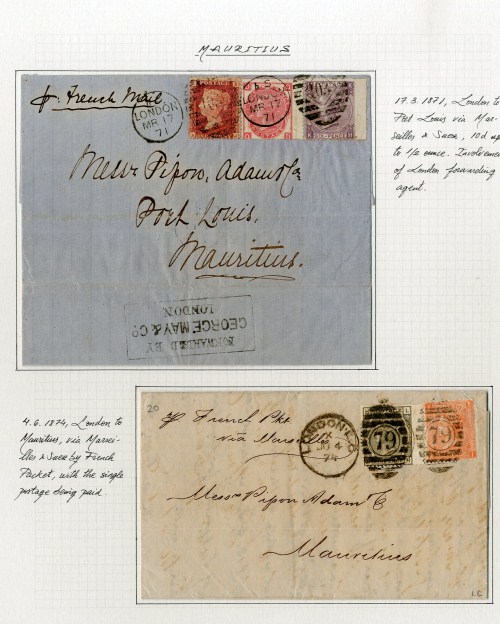 MAURITIUS
pr. French Mail
LONDON
MR 17
71
POSTAGE
LONDON
MR 17
71
Messrs Pipon, Adam & Co
Port Louis,
Mauritius.
FORWARDED BY
GEORGE MAY & Co
LONDON
17.3.1871, London to
Port Louis via Mar-
seilles & Suez, 10d up
to 1/2 ounce. Involvement
of London forwarding
agent.
4.6.1874, London to
Mauritius, via Marsei-
lles & Suez by French
Packet, with the single
postage being paid
20
pr French Pkt
via Marseille
LONDON E.C
JU 4
74
79
79
Messrs Pipon Adam & C
Mauritius
LC